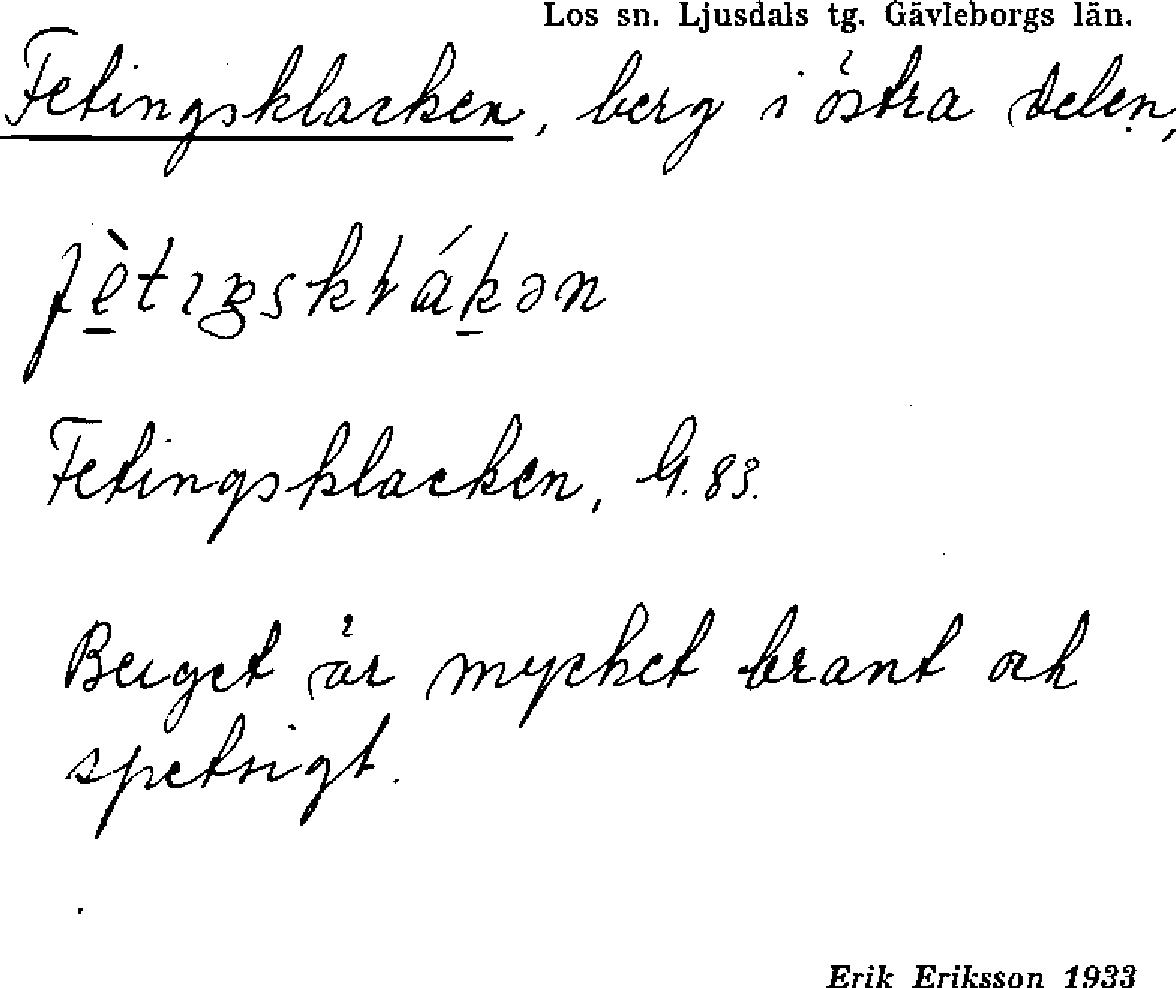 Los sn. Ljusdals tg. Gävleborgs län.
Fetingsklacken, berg i östra delen,
fètıŋskłákən
Fetingsklacken, G. 83.
Berget är mycket brant och
spetsigt.
Erik Eriksson 1933